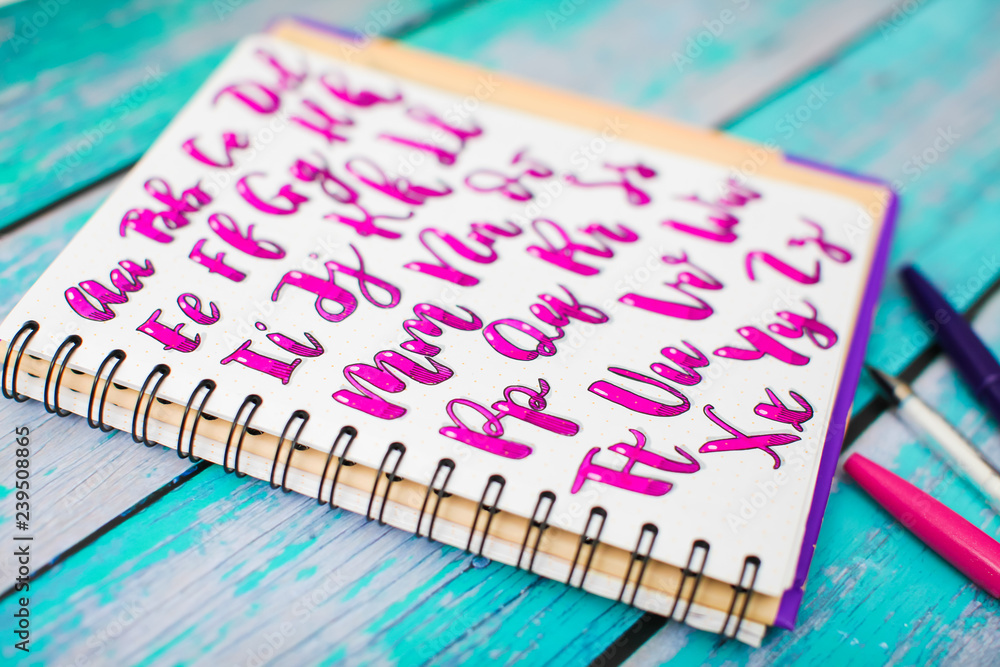 Aa Bb Cc Dd
Ee Ff Gg Hh
Ii Jj Kk Ll
Mm Nn Oo
Pp Qq Rr Ss
Tt Uu Vv Ww
Xx Yy Zz
Adobe Stock | #239508865